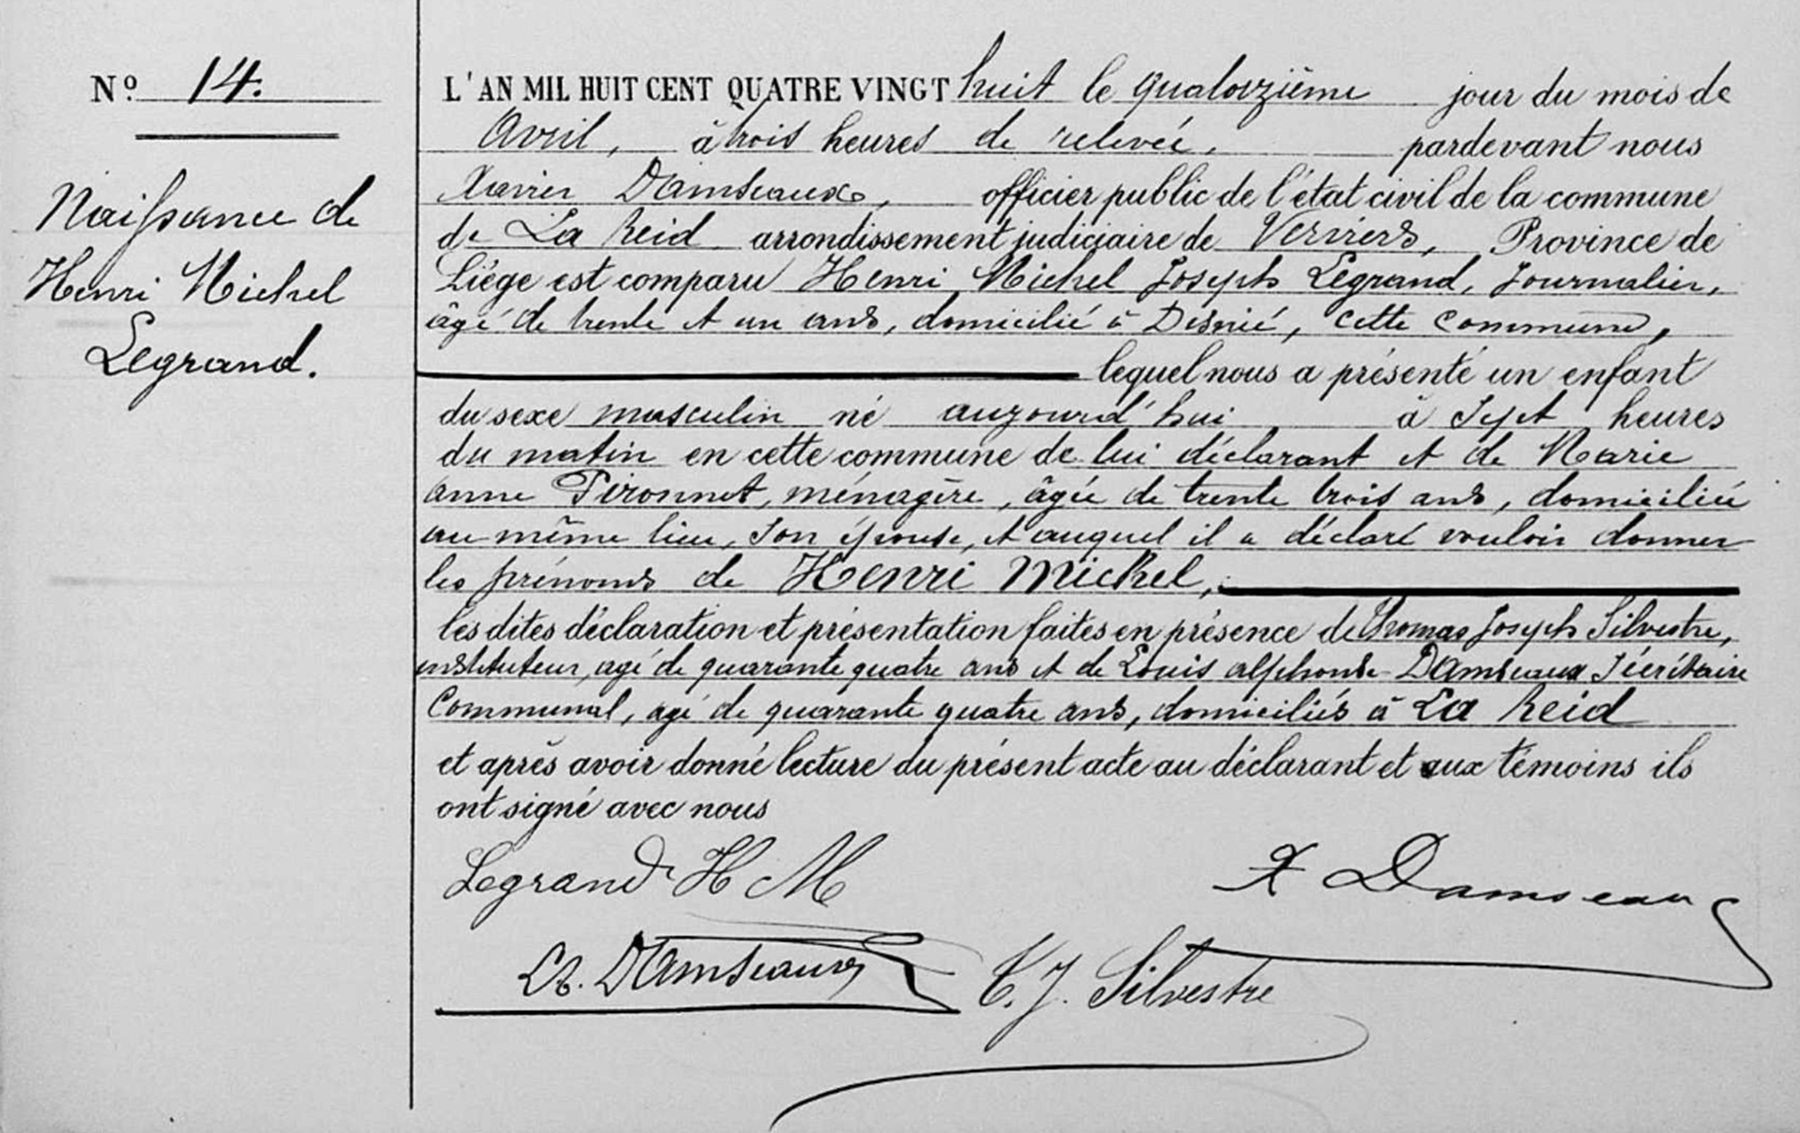 Nº 14.
Naissance de
Henri Michel
Legrand.
L'AN MIL HUIT CENT QUATRE VINGT huit le quatorzième jour du mois de
Avril, à trois heures de relevée, pardevant nous
Xavier Damseaux, officier public de l'état civil de la commune
de La Reid arrondissement judiciaire de Verviers, Province de
Liége est comparu Henri Michel Joseph Legrand, Journalier,
âgé de trente et un ans, domicilié à Desnié, cette commune,
lequel nous a présenté un enfant
du sexe masculin né aujourd'hui à sept heures
du matin en cette commune de lui déclarant et de Marie
anne Pironnet, ménagère, âgée de trente trois ans, domiciliée
au même lieu, son épouse, et auquel il a déclaré vouloir donner
les prénoms de Henri Michel,
les dites déclaration et présentation faites en présence de Thomas Joseph Silvestre,
instituteur, agé de quarante quatre ans et de Louis alphonse Damseaux Sécrétaire
Communal, agé de quarante quatre ans, domiciliés à La Reid
et après avoir donné lecture du présent acte au déclarant et aux témoins ils
ont signé avec nous
Legrand H M
X Damseaux
LA. Damseaux
T. J. Silvestre